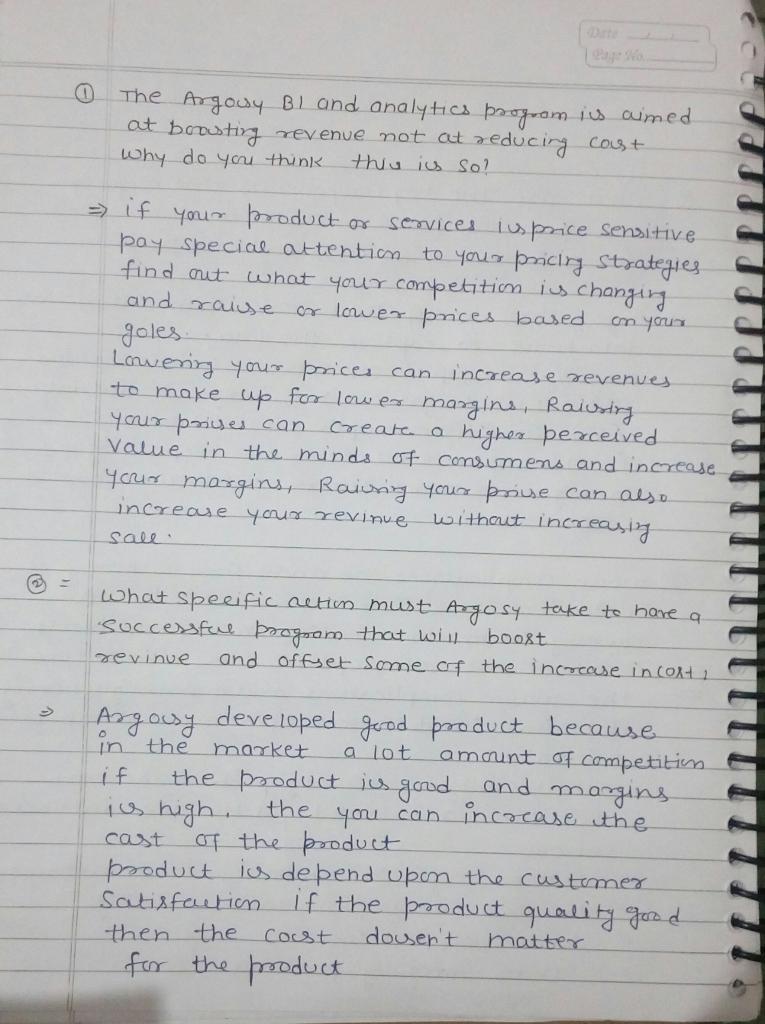 Date
Page No.
① The Argosy BI and analytics program is aimed
at boosting revenue not at reducing cost
Why do you think this is so?
⇒ if your product or services is price sensitive
pay special attention to your pricing strategies
find out what your competition is changing
and raise or lower prices based on your
goles.
Lowering your prices can increase revenues
to make up for lower margins, Raising
your prises can create a higher perceived
value in the minds of consumens and increase
your margins, Raising your prise can also
increase your revinue without increasing
sale.
② = What specific action must Argosy take to have a
successful program that will boost
revinue and offset some of the increase in cost,
⇒ Argosy developed good product because
in the market a lot amount of competition
if the product is good and margins
is high. the you can increase the
cast of the product
product is depend upon the customer
Satisfaction if the product quality good
then the cost dousen't matter
for the product